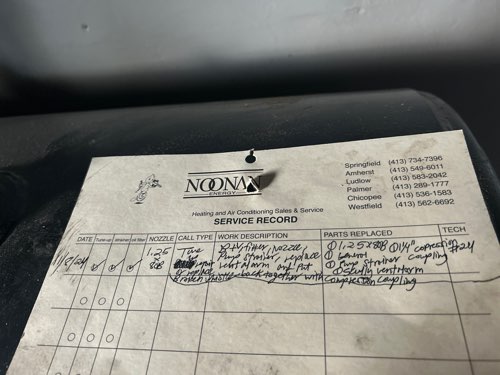 NOONAN
ENERGY
Springfield (413) 734-7396
Amherst (413) 549-6011
Ludlow (413) 583-2042
Palmer (413) 289-1777
Chicopee (413) 536-1583
Westfield (413) 562-6692
Heating and Air Conditioning Sales & Service
SERVICE RECORD
DATE Tune-up strainer oil filter NOZZLE CALL TYPE WORK DESCRIPTION PARTS REPLACED TECH
1.25 Tune nozzle, ① 1.25x80B ① 1/4" compression #24
80B up Pump strainer, replace ① coupling
vent alarm and put ① Pump strainer
broken back together with compression coupling ① ventalarm